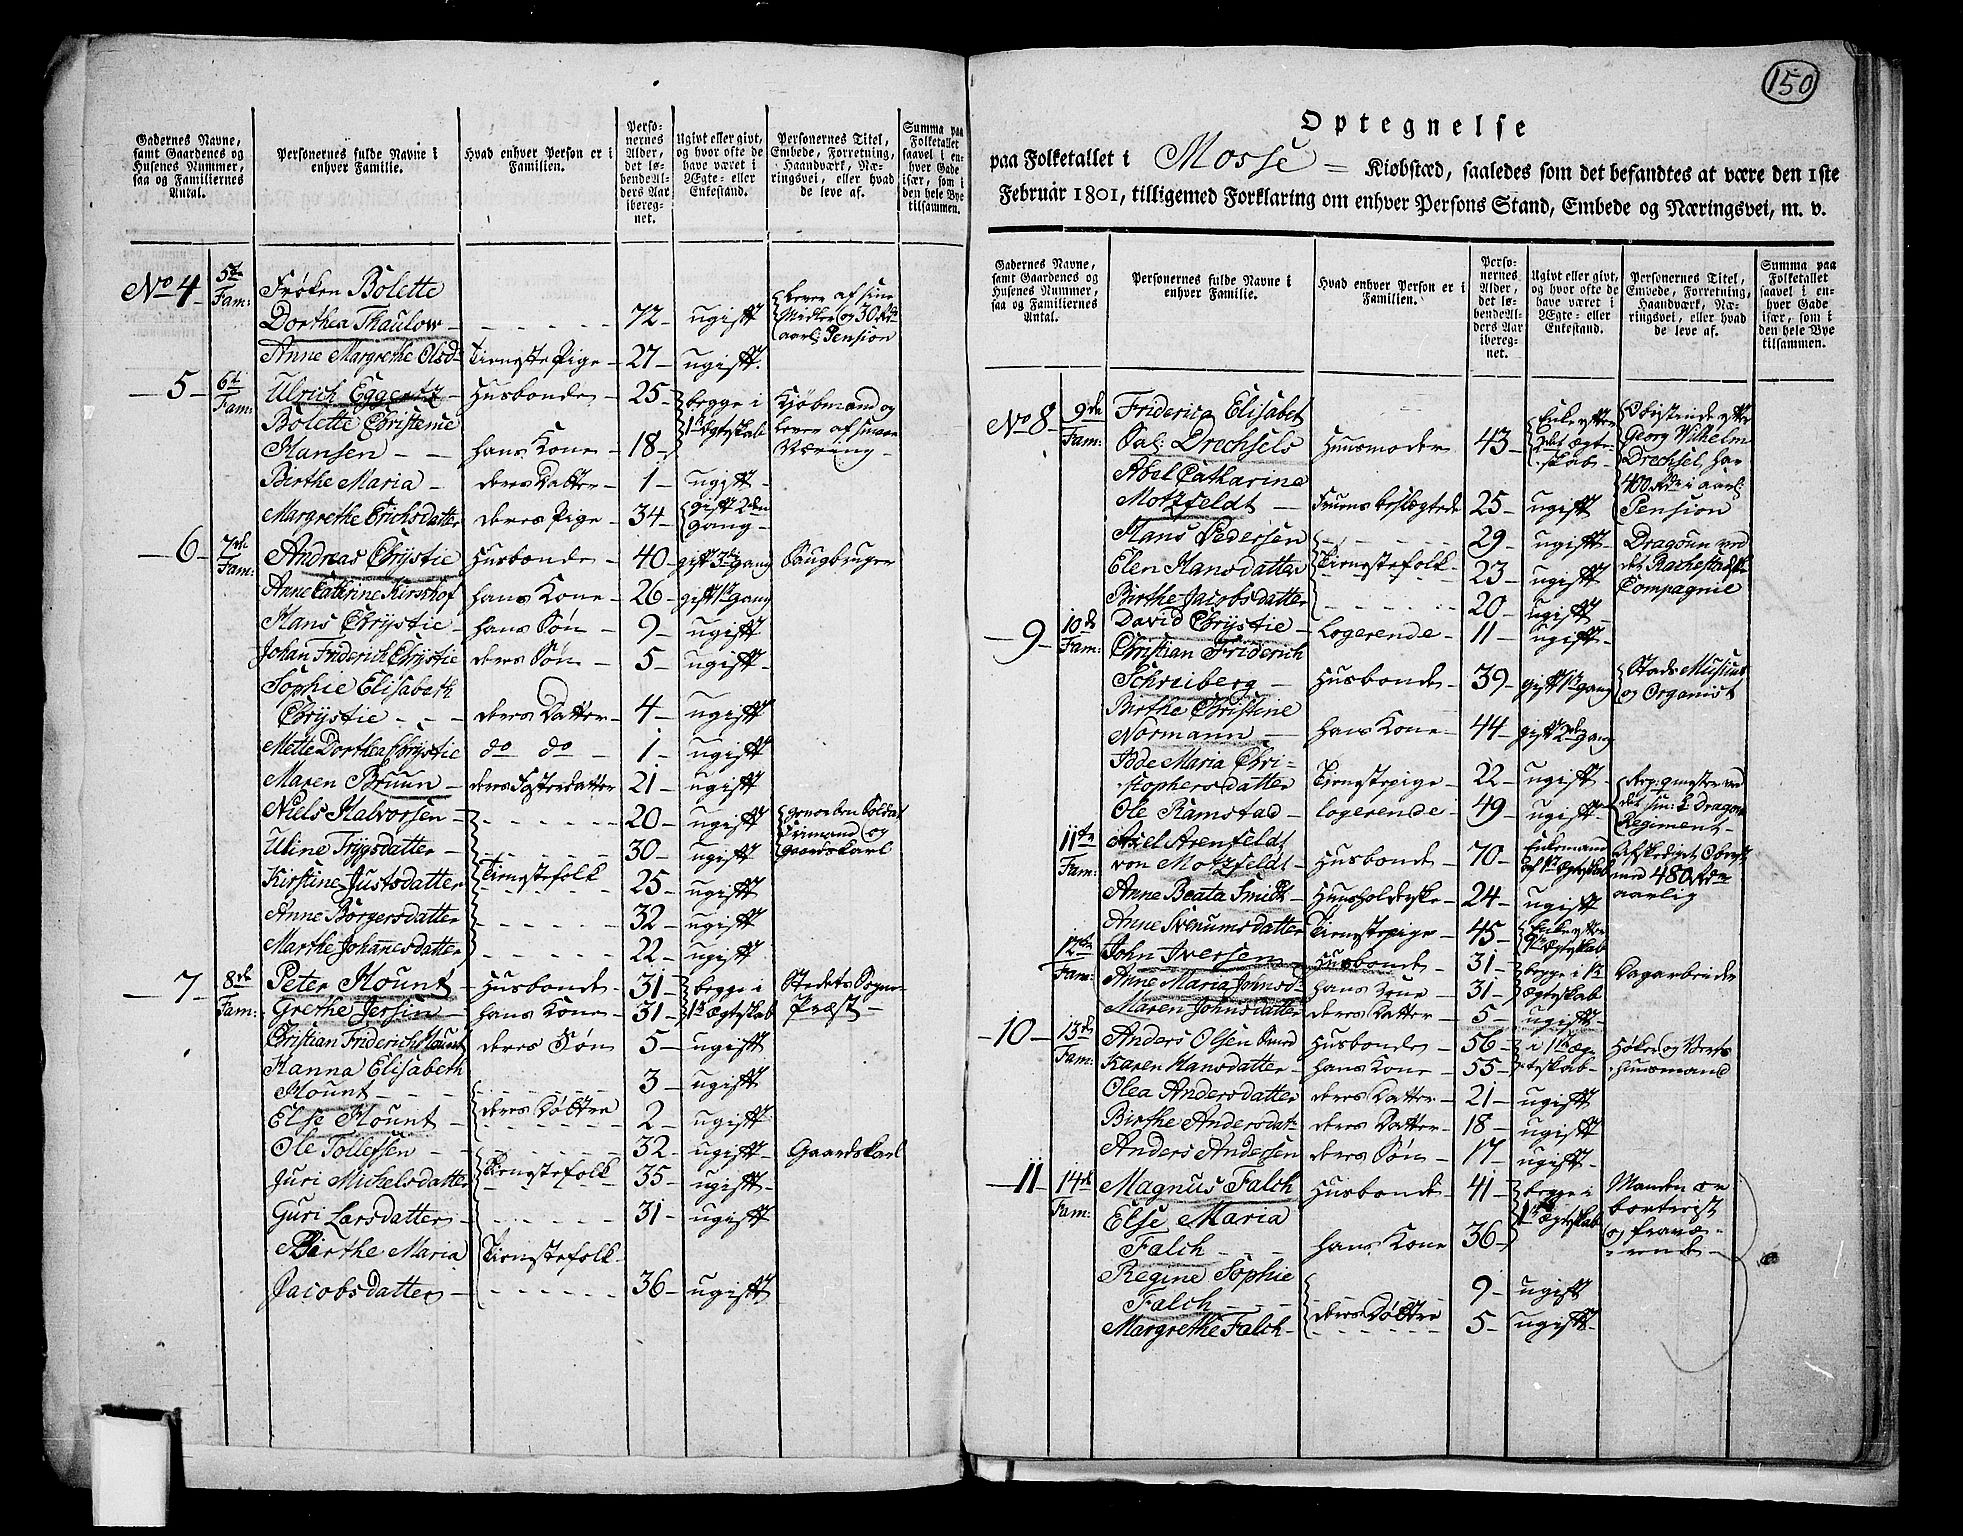 Gadernes Navne, samt Gaardenes og Husenes Nummer, saa og Familiernes Antal.
Personernes fulde Navne i enhver Familie.
Hvad enhver Person er i Familien.
Personernes Alder, det løbende Alders Aar iberegnet.
Ugivt eller givt, og hvor ofte de have været i Ægte- eller Enkestand.
Personernes Titel, Embede, Forretning, Haandværk, Næringsvei, eller hvad de leve af.
Summa paa Folketallet saavel i enhver Gade især, som i den hele Bye tilsammen.
No 4 5te Fam: Frøken Bolette
Dorthea Thaulow - 72 - ugift Lever af sine Midler og 30 Rd aarl: Pension
Anne Margrethe Olsd- Tieneste Pige - 27 - ugift.
5 - 6te Fam: Ulrich Eggertz - Husbonde - 25 - begge i 1te Ægteskab Kjøbmand og lever af smaae Næring -
Bolette Christine
Hansen - - hans Kone - 18 -
Birthe Maria - deres Datter - 1 - ugift -
Margrethe Erichsdatter deres Pige - 34 - gift 2den gang -
6 - 7de Fam: Andreas Chrystie Husbonde - 40 - gift 3die gang Saugbruger
Anne Catrine Kirschof hans Kone - 26 - gift 1te gang
Hans Chrystie - hans Søn - 9 - ugift -
Johan Friderich Chrystie deres Søn - 5 - ugift -
Sophie Elisabeth
Chrystie - - - deres Datter - 4 - ugift
Mette Dorthea Chrystie do do - 1 - ugift
Maren Bruun - deres Søsterdatter 21 - ugift
Niels Halvorsen - 20 - ugift gevorben Soldat Frimand og gaardskarl
Uline Trygsdatter - 30 - ugift
Kirstine Justsdatter Tienestefolk 25 - ugift
Anne Borgersdatter 32 - ugift
Marthe Johannesdatter 22 - ugift
7 - 8de Fam: Peter Hount - Husbonde - 31 - begge i 1te Ægteskab Stedets Sogne-Præst -
Grethe Jersin - hans Kone - 31 -
Christian Friderich Hount deres Søn 5 - ugift
Hanna Elisabeth
Hount - - - 3 - ugift
Else Hount - deres Døttre 2 - ugift
Ole Tollefsen - - 32 - ugift - Gaardskarl
Juri Michelsdatter Tienestefolk 35 - ugift -
Guri Larsdatter - 31 - ugift -
Birthe Maria Tienestefolk
Jacobsdatter - 36 - ugift
150
Optegnelse
paa Folketallet i Mosse = Kiøbstæd, saaledes som det befandtes at være den 1ste
Februar 1801, tilligemed Forklaring om enhver Persons Stand, Embede og Næringsvei, m. v.
Gadernes Navne, samt Gaardenes og Husenes Nummer, saa og Familiernes Antal.
Personernes fulde Navne i enhver Familie.
Hvad enhver Person er i Familien.
Personernes Alder, det løbende Alders Aar iberegnet.
Ugivt eller givt, og hvor ofte de have været i Ægte- eller Enkestand.
Personernes Titel, Embede, Forretning, Haandværk, Næringsvei, eller hvad de leve af.
Summa paa Folketallet saavel i enhver Gade især, som i den hele Bye tilsammen.
No 8 - 9de Fam: Friderica Elisabet
Sal: Drechsels Huusmoder 43 - Enke efter 2det Ægteskab - efter Georg Wilhelm Drechsel, har 400 Rd i aarl: Pension
Abel Catharine
Motzfeldt - Fruens beslægtede 25 - ugift
Hans Pedersen 29 - ugift - Dragoun ved det Compagnie
Elen Hansdatter Tienestefolk - 23 - ugift
Birthe Jacobsdatter 20 - ugift -
9 - 10de Fam: David Chrystie - Logerende - 11 - ugift -
Christian Friderich
Schreiberg - Husbonde - 39 - gift 1te gang Stads Musicus og Organist
Birthe Christine
Normann - hans Kone - 44 - gift 2de gang
Ode Maria Chri-
stophersdatter Tienestepige - 22 - ugift -
Ole Ramstad - logerende - 49 - ugift - ved det Dragon Regiment -
11te Fam: Axel Arenfeldt
von Motzfeldt - Husbonde - 70 - Enkemand af 1te Ægteskab afskediget Oberst med 480 Rdr aarlig
Anne Beata Smidt - Huusholderske - 24 - ugift
Anne Svenumsdatter Tienestepige - 45 - Enke efter 1te Ægteskab
12te Fam: John Iversen Husbonde - 31 - begge i 1te Ægteskab Dagarbeider
Anne Maria Johnsd- hans Kone - 31 -
Maren Johnsdatter deres Datter - 5 - ugift -
10 - 13de Fam: Anders Olsen Husbonde - 56 - i 1te Ægteskab - Høker og Verts-huusmand
Karen Hansdatter - hans Kone - 55 -
Olea Andersdatter deres Datter - 21 - ugift
Birthe Andersdat: deres Datter - 18 - ugift
Anders Andersen deres Søn - 17 - ugift -
11 - 14de Fam: Magnus Falch Husbonde - 41 - begge i 1te Ægteskab Manden er bortreist og fravæ-rende -
Else Maria
Falch - - - hans Kone 36 -
Regine Sophie
Falch - - - 9 - ugift
Margrethe Falch - deres Døttre 5 - ugift -